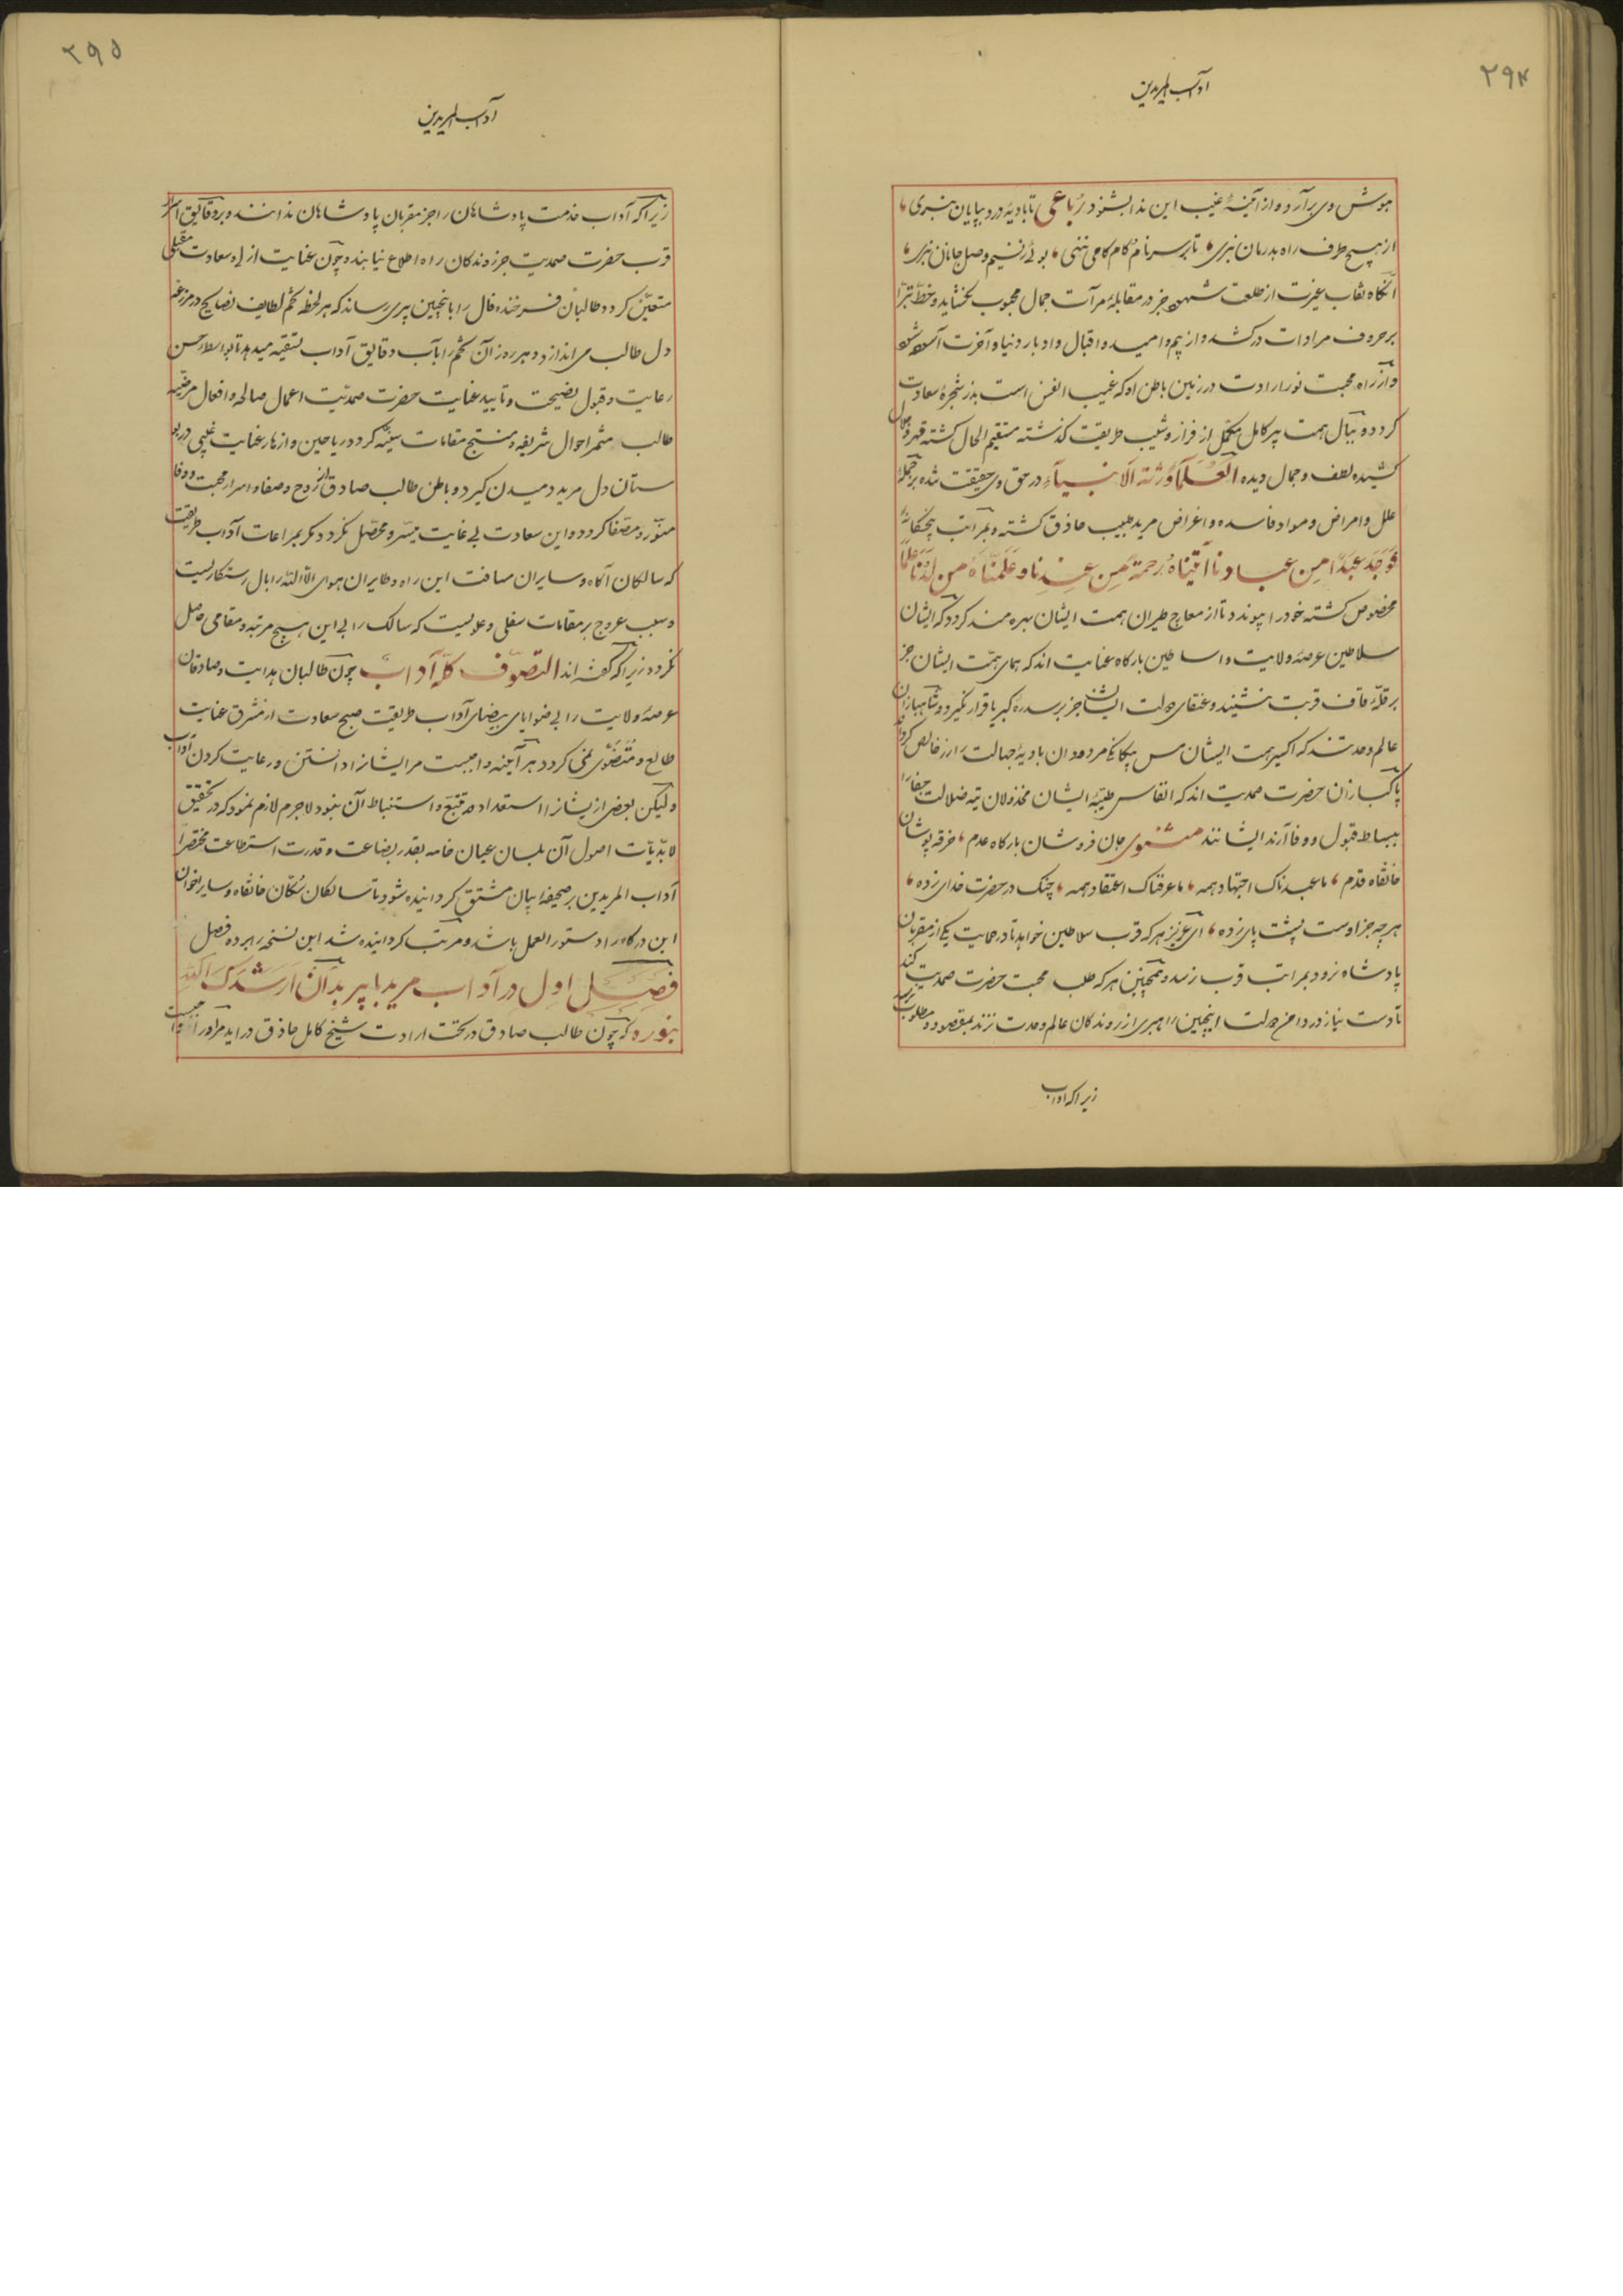 ۲۹۴
آداب المریدین
هوش وی برآرد و از آینهٔ غیب این ندا بشنود رباعی تا بادیهٔ درد بپایان نبری
از هیچ طرف راه بدرمان نبری تا بر سر نام و کام کامی ننهی بوئی ز نسیم وصل جانان نبری
آنگاه نقاب عزت از طلعت شهود جز در مقابلهٔ مرآت جمال محبوب نگشاید و خط تبرّا
بر حروف مرادات درکشد و از بیم و امید و اقبال و ادبار دنیا و آخرت آسوده شود
و از راه محبت نور ارادت در زمین باطن او که غیب النفس است بذر شجرهٔ سعادت
گردد و ببال همت پیر کامل مکمّل از فراز و شیب طریقت گذشته مستقیم الحال گشته قهر و جلال
کشیده لطف و جمال دیده العلمآء ورثة الانبیآء در حق وی حقیقت شده بر جملهٔ
علل و امراض و مواد فاسده و اغراض مرید طبیب حاذق گشته و بمراتب پنجگانهٔ
فوجد عبدا من عبادنا آتیناه رحمة من عندنا و علّمناه من لدنّا علما
مخصوص گشته خود را پیوندد تا از معاج طیران همت ایشان بهره مند گردد که ایشان
سلاطین عرصهٔ ولایت و اساطین بارگاه عنایت اند که همای همّت ایشان جز
بر قلّهٔ قاف قربت ننشیند و عنقای دولت ایشان جز بر سدرهٔ کبریا قرار نگیرد و شاهبازان
عالم وحدتند که اکسیر همت ایشان مس بیگانگی مردودان بادیهٔ جهالت را زر خالص گرداند
پاکبازان حضرت صمدیت اند که انفاس طیّبهٔ ایشان مخذولان تیه ضلالت جفا را
ببساط قبول و وفا آرند ایشانند مثنوی جان فروشان بارگاه عدم خرقه پوشان
خانقاه قدم ما عبدناک اجتهاد همه ما عرفناک اعتقاد همه چنگ در حضرت خدای زده
هر چه جز اوست پشت پای زده ای عزیز هر که قرب سلاطین خواهد تا در حمایت یکی از مقربان
پادشاه نرود بمراتب قرب نرسد و همچنین هر که طلب محبت حضرت صمدیت کند
تا دست نیاز در دامن دولت اینچنین راهبری از روندگان عالم وحدت نزند بمقصود و مطلوب نرسد
زیرا که آداب
۲۹۵
آداب المریدین
زیرا که آداب خدمت پادشاهان را جز مقربان پادشاهان ندانند و بر دقایق اسرار
قرب حضرت صمدیت جز روندگان راه اطلاع نیابند و چون عنایت ازلی و سعادت مقبلی
متعیّن گردد و طالبان فرخنده فال را باینچنین پیری رساند که هر لحظه تخم لطایف نصایح در مزرعهٔ
دل طالب می اندازد و هر روز آن تخم را بآب دقایق آداب تسقیه میدهد تا بواسطهٔ حسن
رعایت و قبول نصیحت و تایید عنایت حضرت صمدیّت اعمال صالحه و افعال مرضیّه
طالب مثمر احوال شریفه و منتج مقامات سنیّه گردد و ریاحین و ازهار عنایت غیبی در بو
ستان دل مرید دمیدن گیرد و باطن طالب صادق از روح و صفا و اسرار محبت و وفا
منوّر و مصفّا گردد و این سعادت بی غایت میسّر و محصّل نگردد مگر بمراعات آداب طریقت
که سالکان آگاه و سایران مسافت این راه و طایران هوای الا الله را بال رستگاریست
و سبب عروج بر مقامات سفلی و علویست که سالک را بی این هیچ مرتبه و مقامی حاصل
نگردد زیرا که گفته اند التصوّف کلّه آداب چون طالبان هدایت و صادقان
عرصهٔ ولایت را بی ضوابط بیضای آداب طریقت صبح سعادت از مشرق عنایت
طالع و متضوّی نمی گردد هر آینه واجبست مر ایشان را دانستن و رعایت کردن آداب
و لیکن بعضی از ایشان را استعداد تتبّع و استنباط آن نبود لاجرم لازم نمود که در تحقیق
لابدّیّات اصول آن بلسان عیان خامه بقدر بضاعت و قدرت استطاعت مختصرا
آداب المریدین بر صحیفهٔ بیان مشتق گردانیده شود تا سالکان سکّان خانقاه و سایر اخوان
این درگاه را دستور العمل باشد و مرتّب گردانیده شد این نسخه را بر ده فصل
فصل اول در آداب مرید با پیر بدان ارشدک الله
بنوره که چون طالب صادق در تحت ارادت شیخ کامل حاذق در آید مر او را واجبست